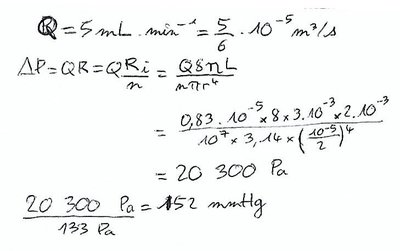 Q = 5 mL . min⁻¹ = 5/6 . 10⁻⁵ m³/s
ΔP = QR = QRi/n = Q8ηL/nπr⁴
= 0,83 . 10⁻⁵ × 8 × 3.10⁻³ × 2.10⁻³ / 10⁷ × 3,14 × (10⁻⁵/2)⁴
= 20 300 Pa
20 300 Pa / 133 Pa = 152 mmHg